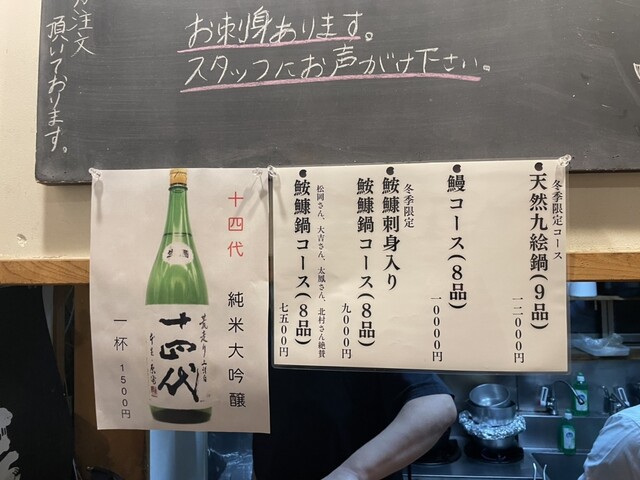 お刺身あります。
スタッフにお声がけ下さい。
注文
頂いております。
十四代
純米大吟醸
一杯 1500円
十四代
冬季限定コース
天然九絵鍋(9品)
一二000円
鰻コース(8品)
一0000円
冬季限定
鮟鱇刺身入り
鮟鱇鍋コース(8品)
九000円
松岡さん、大吉さん、太鳳さん、北村さん絶賛
鮟鱇鍋コース(8品)
七五00円